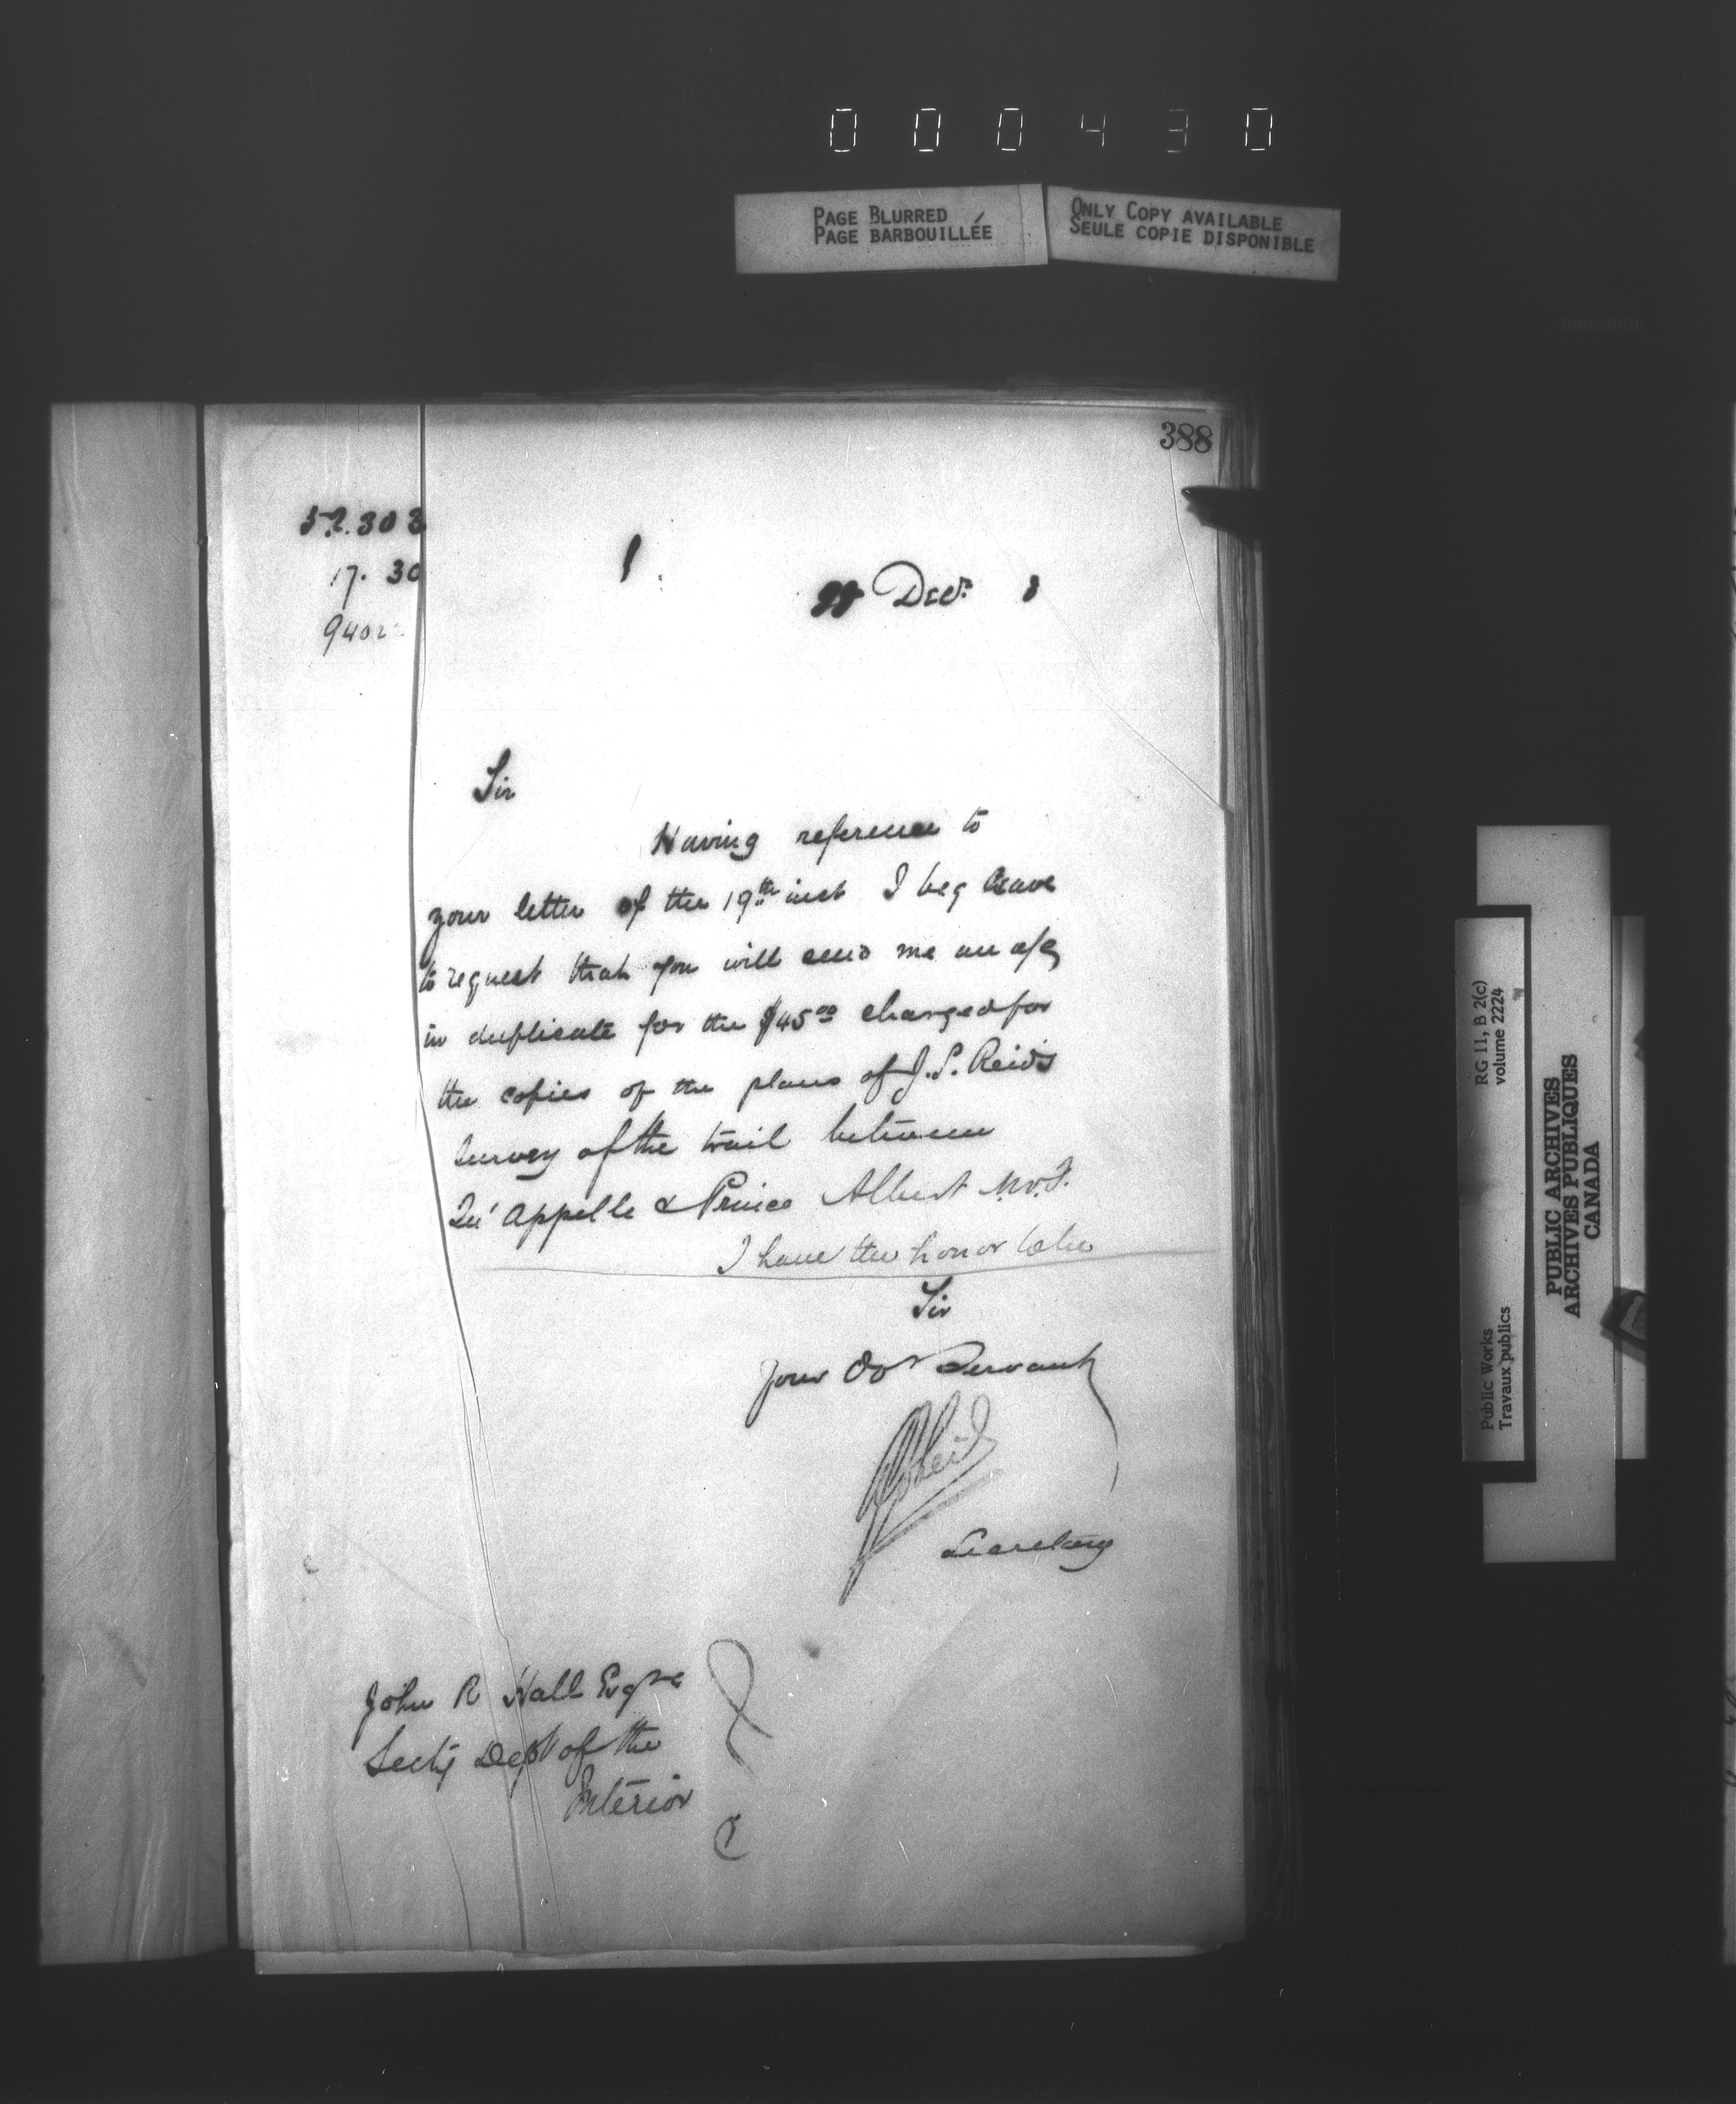 000430
PAGE BLURRED
PAGE BARBOUILLÉE
ONLY COPY AVAILABLE
SEULE COPIE DISPONIBLE
388
52.303
17. 30
9402
1
Decr. 8
Sir
Having reference to
your letter of the 19th inst I beg leave
to request that you will send me an a/c
in duplicate for the $45.00 charged for
the copies of the plans of J. L. Reid's
survey of the trail between
Qu'Appelle & Prince Albert N.W.T.
I have the honor to be
Sir
Your Obt Servant
Secretary
John R Hall Esqre
Secty Dept of the
Interior
RG 11, B 2(c)
volume 2224
Public Works
Travaux publics
PUBLIC ARCHIVES
ARCHIVES PUBLIQUES
CANADA